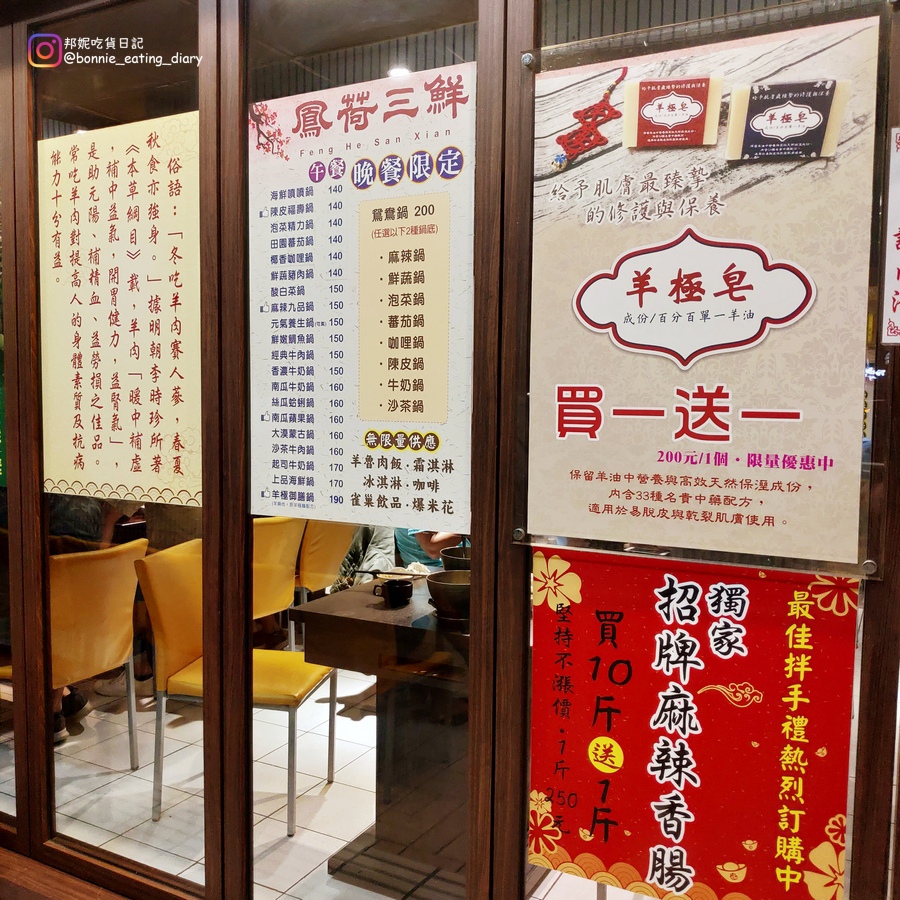 邦妮吃貨日記
@bonnie_eating_diary
俗語：「冬吃羊肉賽人蔘，春夏
秋食亦強身。」據明朝李時珍所著
《本草綱目》載，羊肉「暖中補虛
，補中益氣，開胃健力，益腎氣」，
是助元陽、補精血、益勞損之佳品。
常吃羊肉對提高人的身體素質及抗病
能力十分有益。
鳳荷三鮮
Feng He San Xian
午餐 晚餐限定
海鮮噴噴鍋 140
陳皮福壽鍋 140
泡菜精力鍋 140
田園蕃茄鍋 140
椰香咖哩鍋 140
鮮蔬豬肉鍋 140
酸白菜鍋 150
麻辣九品鍋 150
元氣養生鍋 150
鮮嫩鯛魚鍋 150
經典牛肉鍋 150
香濃牛奶鍋 150
南瓜牛奶鍋 160
絲瓜蛤蜊鍋 160
南瓜蘋果鍋 160
大漠蒙古鍋 160
沙茶牛肉鍋 160
起司牛奶鍋 170
上品海鮮鍋 170
羊極御膳鍋 190
鴛鴦鍋 200
(任選以下2種鍋底)
・麻辣鍋
・鮮蔬鍋
・泡菜鍋
・蕃茄鍋
・咖哩鍋
・陳皮鍋
・牛奶鍋
・沙茶鍋
無限量供應
羊魯肉飯・霜淇淋
冰淇淋・咖啡
雀巢飲品・爆米花
給予肌膚最臻摯的修護與保養
羊極皂
給予肌膚最臻摯的修護與保養
羊極皂
給予肌膚最臻摯
的修護與保養
羊極皂
成份/百分百單一羊油
買一送一
200元/1個・限量優惠中
保留羊油中營養與高效天然保溼成份，
內含33種名貴中藥配方，
適用於易脫皮與乾裂肌膚使用。
最佳拌手禮熱烈訂購中
獨家
招牌麻辣香腸
買10斤送1斤
堅持不漲價・1斤250元